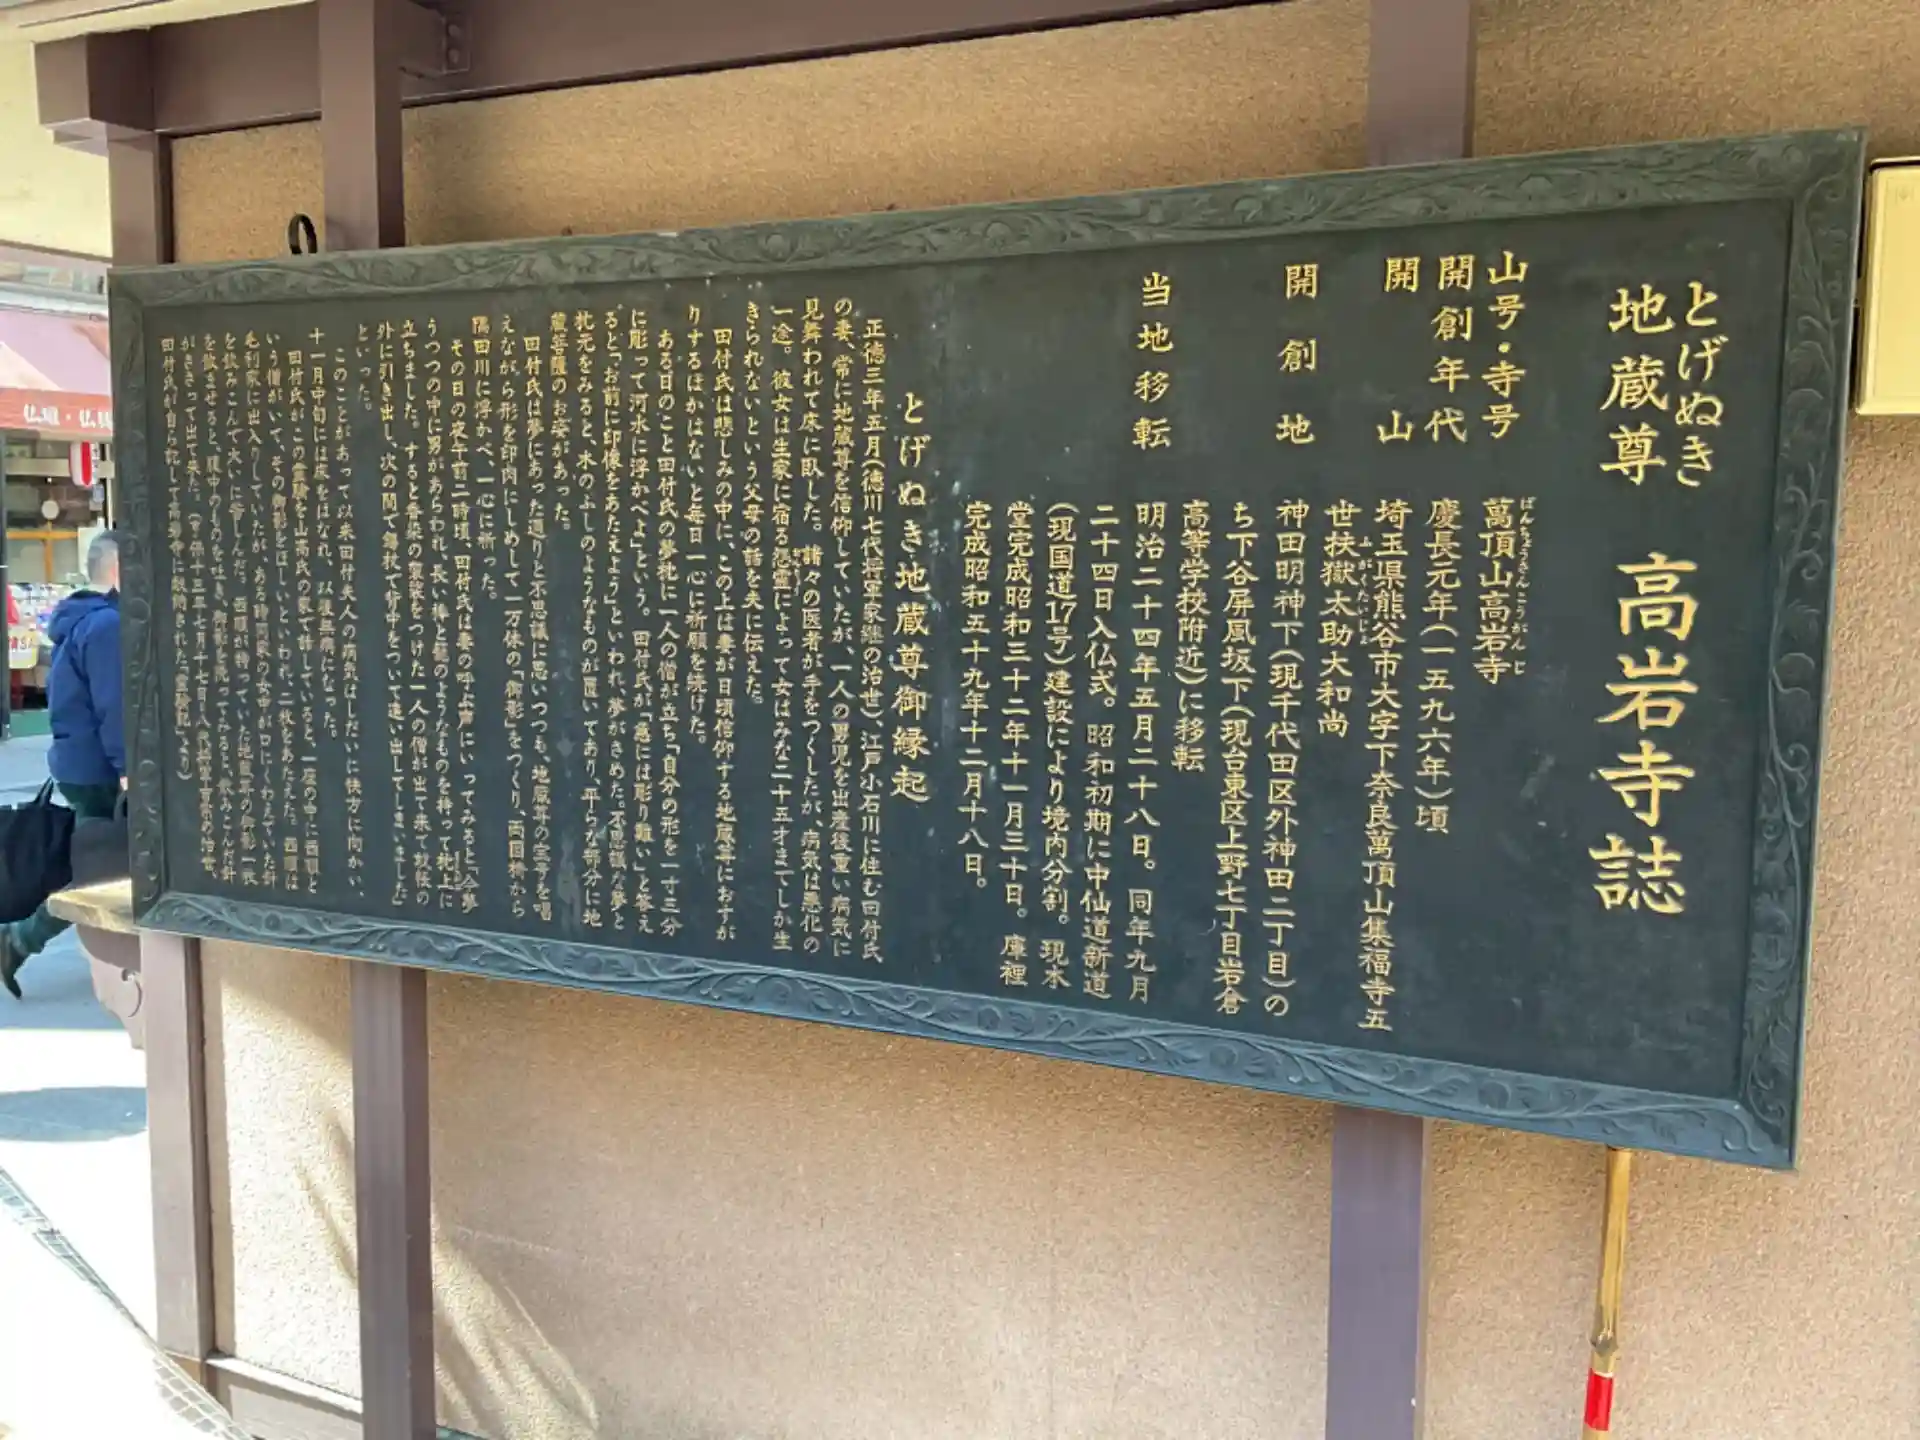 とげぬき
地蔵尊 高岩寺誌
山号・寺号 萬頂山高岩寺
ばんちょうざんこうがんじ
開創年代 慶長元年(一五九六年)頃
開山 埼玉県熊谷市大字下奈良萬頂山集福寺五
世扶獄太助大和尚
ふがくたいじょ
開創地 神田明神下(現千代田区外神田二丁目)の
ち下谷屏風坂下(現台東区上野七丁目岩倉
高等学校附近)に移転
当地移転 明治二十四年五月二十八日。同年九月
二十四日入仏式。昭和初期に中仙道新道
(現国道17号)建設により境内分割。現本
堂完成昭和三十二年十一月三十日。庫裡
完成昭和五十九年十二月十八日。
とげぬき地蔵尊御縁起
正徳三年五月(徳川七代将軍家継の治世)、江戸小石川に住む田付氏
の妻、常に地蔵尊を信仰していたが、一人の男児を出産後重い病気に
見舞われて床に臥した。諸々の医者が手をつくしたが、病気は悪化の
一途。彼女は生家に宿る怨霊によって女はみな二十五才までしか生
きられないという父母の話を夫に伝えた。
田付氏は悲しみの中に、この上は妻が日頃信仰する地蔵尊におすが
りするほかはないと毎日一心に祈願を続けた。
ある日のこと田付氏の夢枕に一人の僧が立ち「自分の形を一寸三分
に彫って河水に浮かべよ」という。田付氏が「急には彫り難い」と答え
ると「お前に印像をあたえよう」といわれ、夢がさめた。不思議な夢と
枕元をみると、木のふしのようなものが置いてあり、平らな部分に地
蔵菩薩のお姿があった。
田付氏は夢にあった通りと不思議に思いつつも、地蔵尊の宝号を唱
えながら形を印肉にしめして一万体の「御影」をつくり、両国橋から
隅田川に浮かべ、一心に祈った。
その日の夜午前二時頃、田付氏は妻の呼ぶ声にいってみると「今夢
うつつの中に男があらわれ、長い棒と籠のようなものを持って枕上に
立ちました。すると香染の袈裟をつけた一人の僧が出て来て敷抜の
外に引き出し、次の間で錫杖で背中をついて追い出してしまいました」
といった。
このことがあって以来田付夫人の病気はしだいに快方に向かい、
十一月中旬には床をはなれ、以後無病になった。
田付氏がこの霊験を山高氏の家で話していると、一座の中に西順と
いう僧がいて、その御影をほしいといわれ、二枚をあたえた。西順は
毛利家に出入りしていたが、ある時同家の女中が口にくわえていた針
を飲みこんで大いに苦しんだ。西順が持っていた地蔵尊の御影一枚
を飲ませると、腹中のものを吐き、御影を洗ってみると、飲みこんだ針
がささって出て来た。(享保十三年七月十七日八代将軍吉宗の治世、
田付氏が自ら記して高岩寺に献納された「霊験記」より)
仏壇・仏具